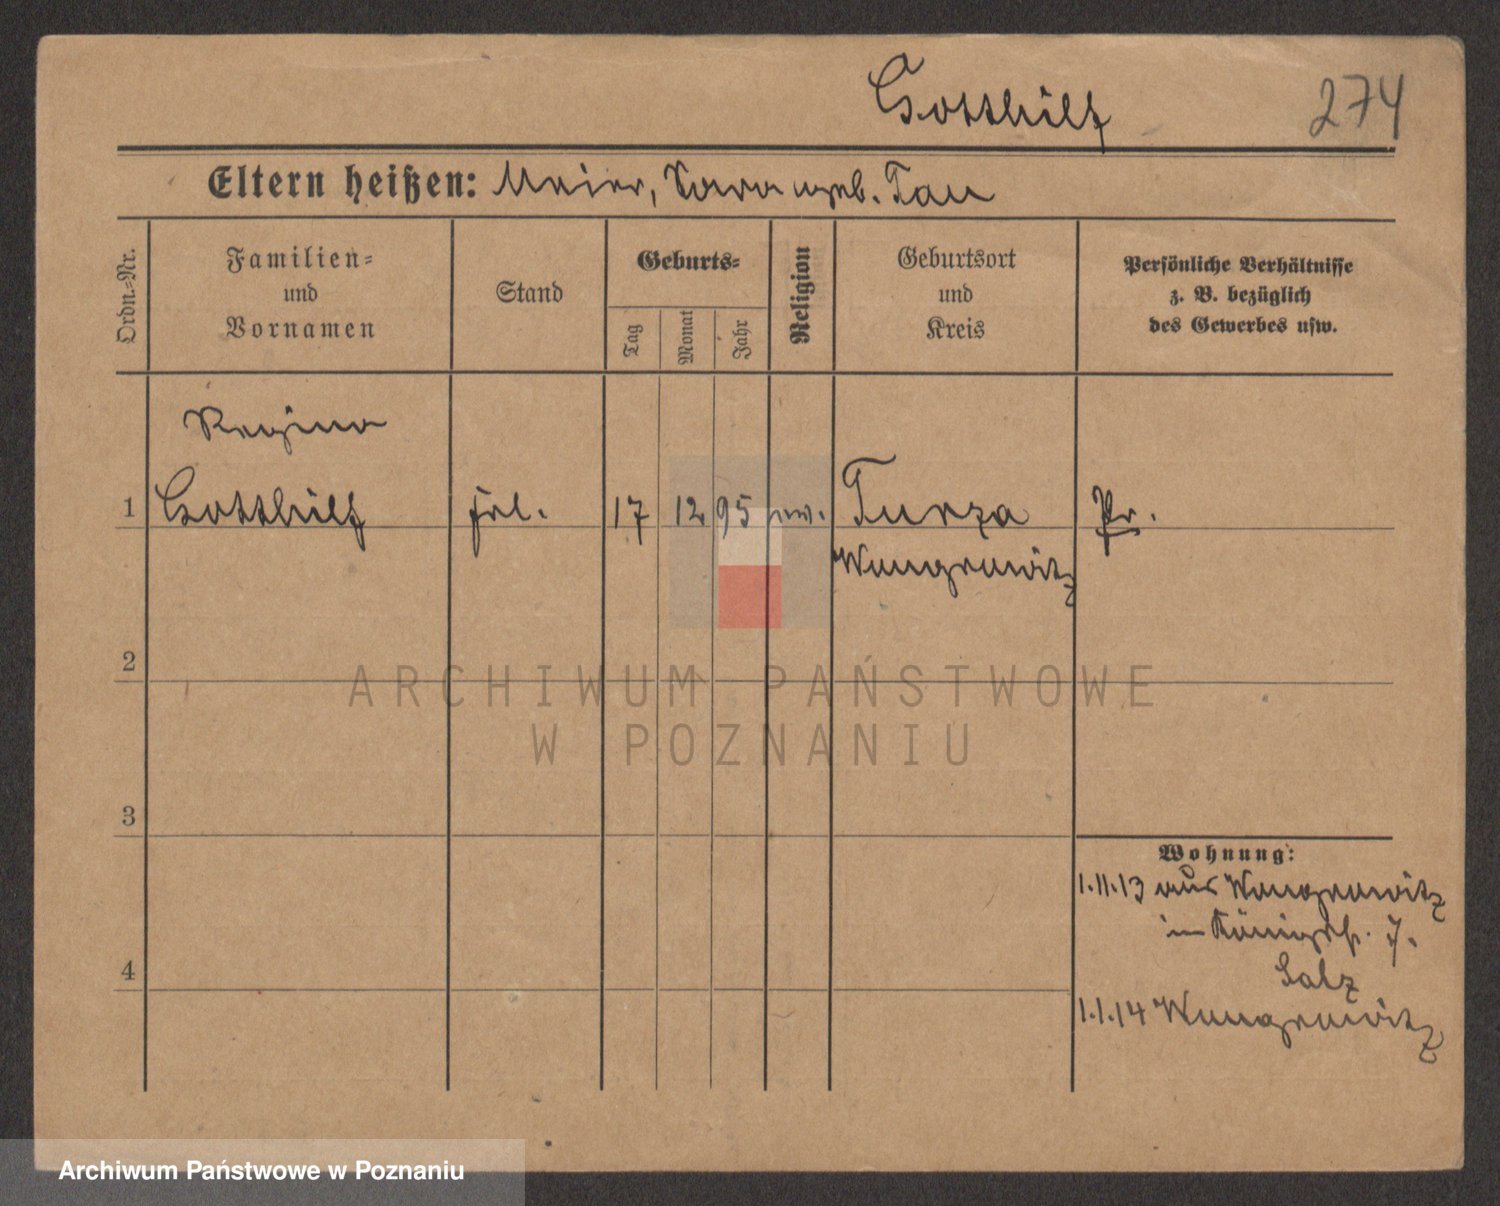 Gotthilf
274
Eltern heißen: Meier, Sara geb. Tau
Ordn.=Nr.
Familien=
und
Vornamen
Stand
Geburts=
Tag
Monat
Jahr
Religion
Geburtsort
und
Kreis
Persönliche Verhältnisse
z. B. bezüglich
des Gewerbes usw.
Regina
1 Gotthilf frl. 17 12 95 Turza Pr.
Wongrowitz
2
ARCHIWUM PAŃSTWOWE
W POZNANIU
3
Wohnung:
1.11.13 aus Wongrowitz
Königspl. 7.
4
Salz
1.1.14 Wongrowitz
Archiwum Państwowe w Poznaniu